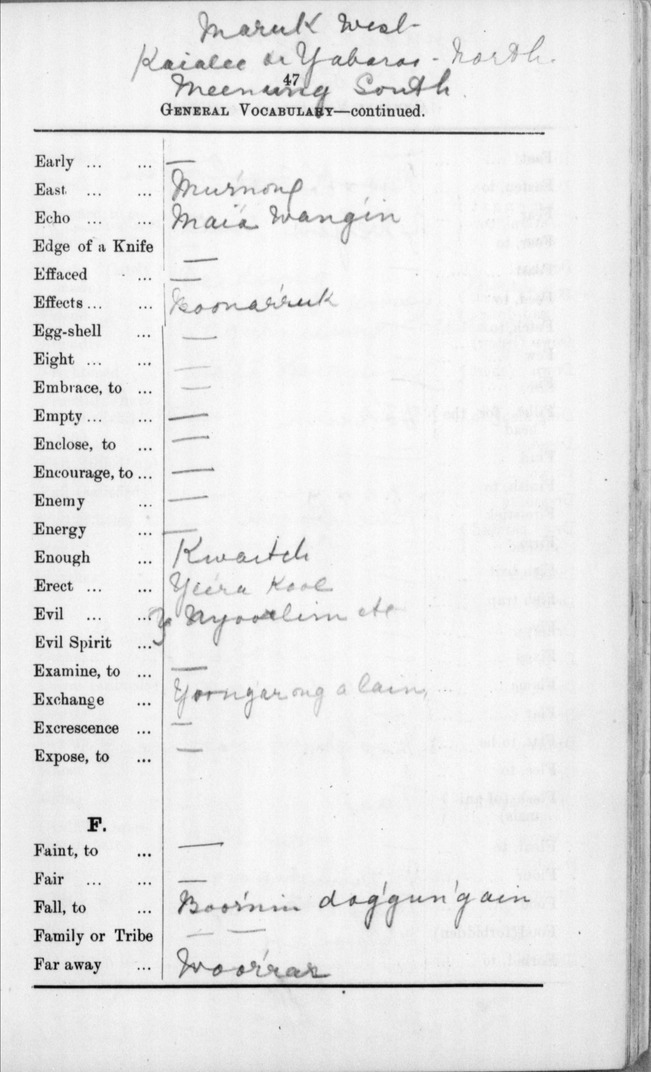 Maruk West
Kaialee or Yabaroo - North.
47
Meenung South
GENERAL VOCABULARY—continued.
Early ... ... —
East ... ... Mur'nong
Echo ... Maia Wangin
Edge of a Knife —
Effaced ... —
Effects ... ... Boonar'ruk
Egg-shell ... —
Eight ... ... —
Embrace, to ... —
Empty ... ... —
Enclose, to ... —
Encourage, to ... —
Enemy ... —
Energy ... —
Enough ... Kwaitch
Erect ... ... Yeera Kool
Evil ... ...
Evil Spirit ...
Examine, to ... —
Exchange ... Yoong'ar ong a
Excrescence ... —
Expose, to ... —
F.
Faint, to ... —
Fair ... ... —
Fall, to ... Boor'nin dog'gun'gain
Family or Tribe — —
Far away ... Woor'rar